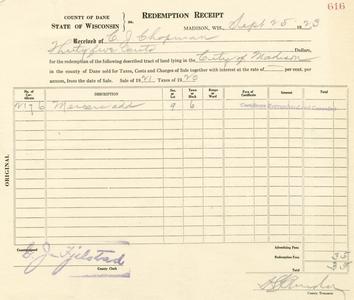 616
COUNTY OF DANE
STATE OF WISCONSIN
ss.
REDEMPTION RECEIPT
MADISON, WIS., Sept 25 1923
Received of C J Chapman
Thirty five Cents Dollars,
for the redemption of the following described tract of land lying in the City of Madison
in the county of Dane sold for Taxes, Costs and Charges of Sale together with interest at the rate of per cent, per
annum, from the date of Sale. Sale of 1921 Taxes of 1920
No. of Certificate DESCRIPTION Sec. or Lot Town or Block Range or Ward Face of Certificate Interest Total
add 9 6 Certificate Cancelled
ORIGINAL
Advertising Fees
Redemption Fees
Total
Countersigned
C. J. Fjelstad
County Clerk
County Treasurer